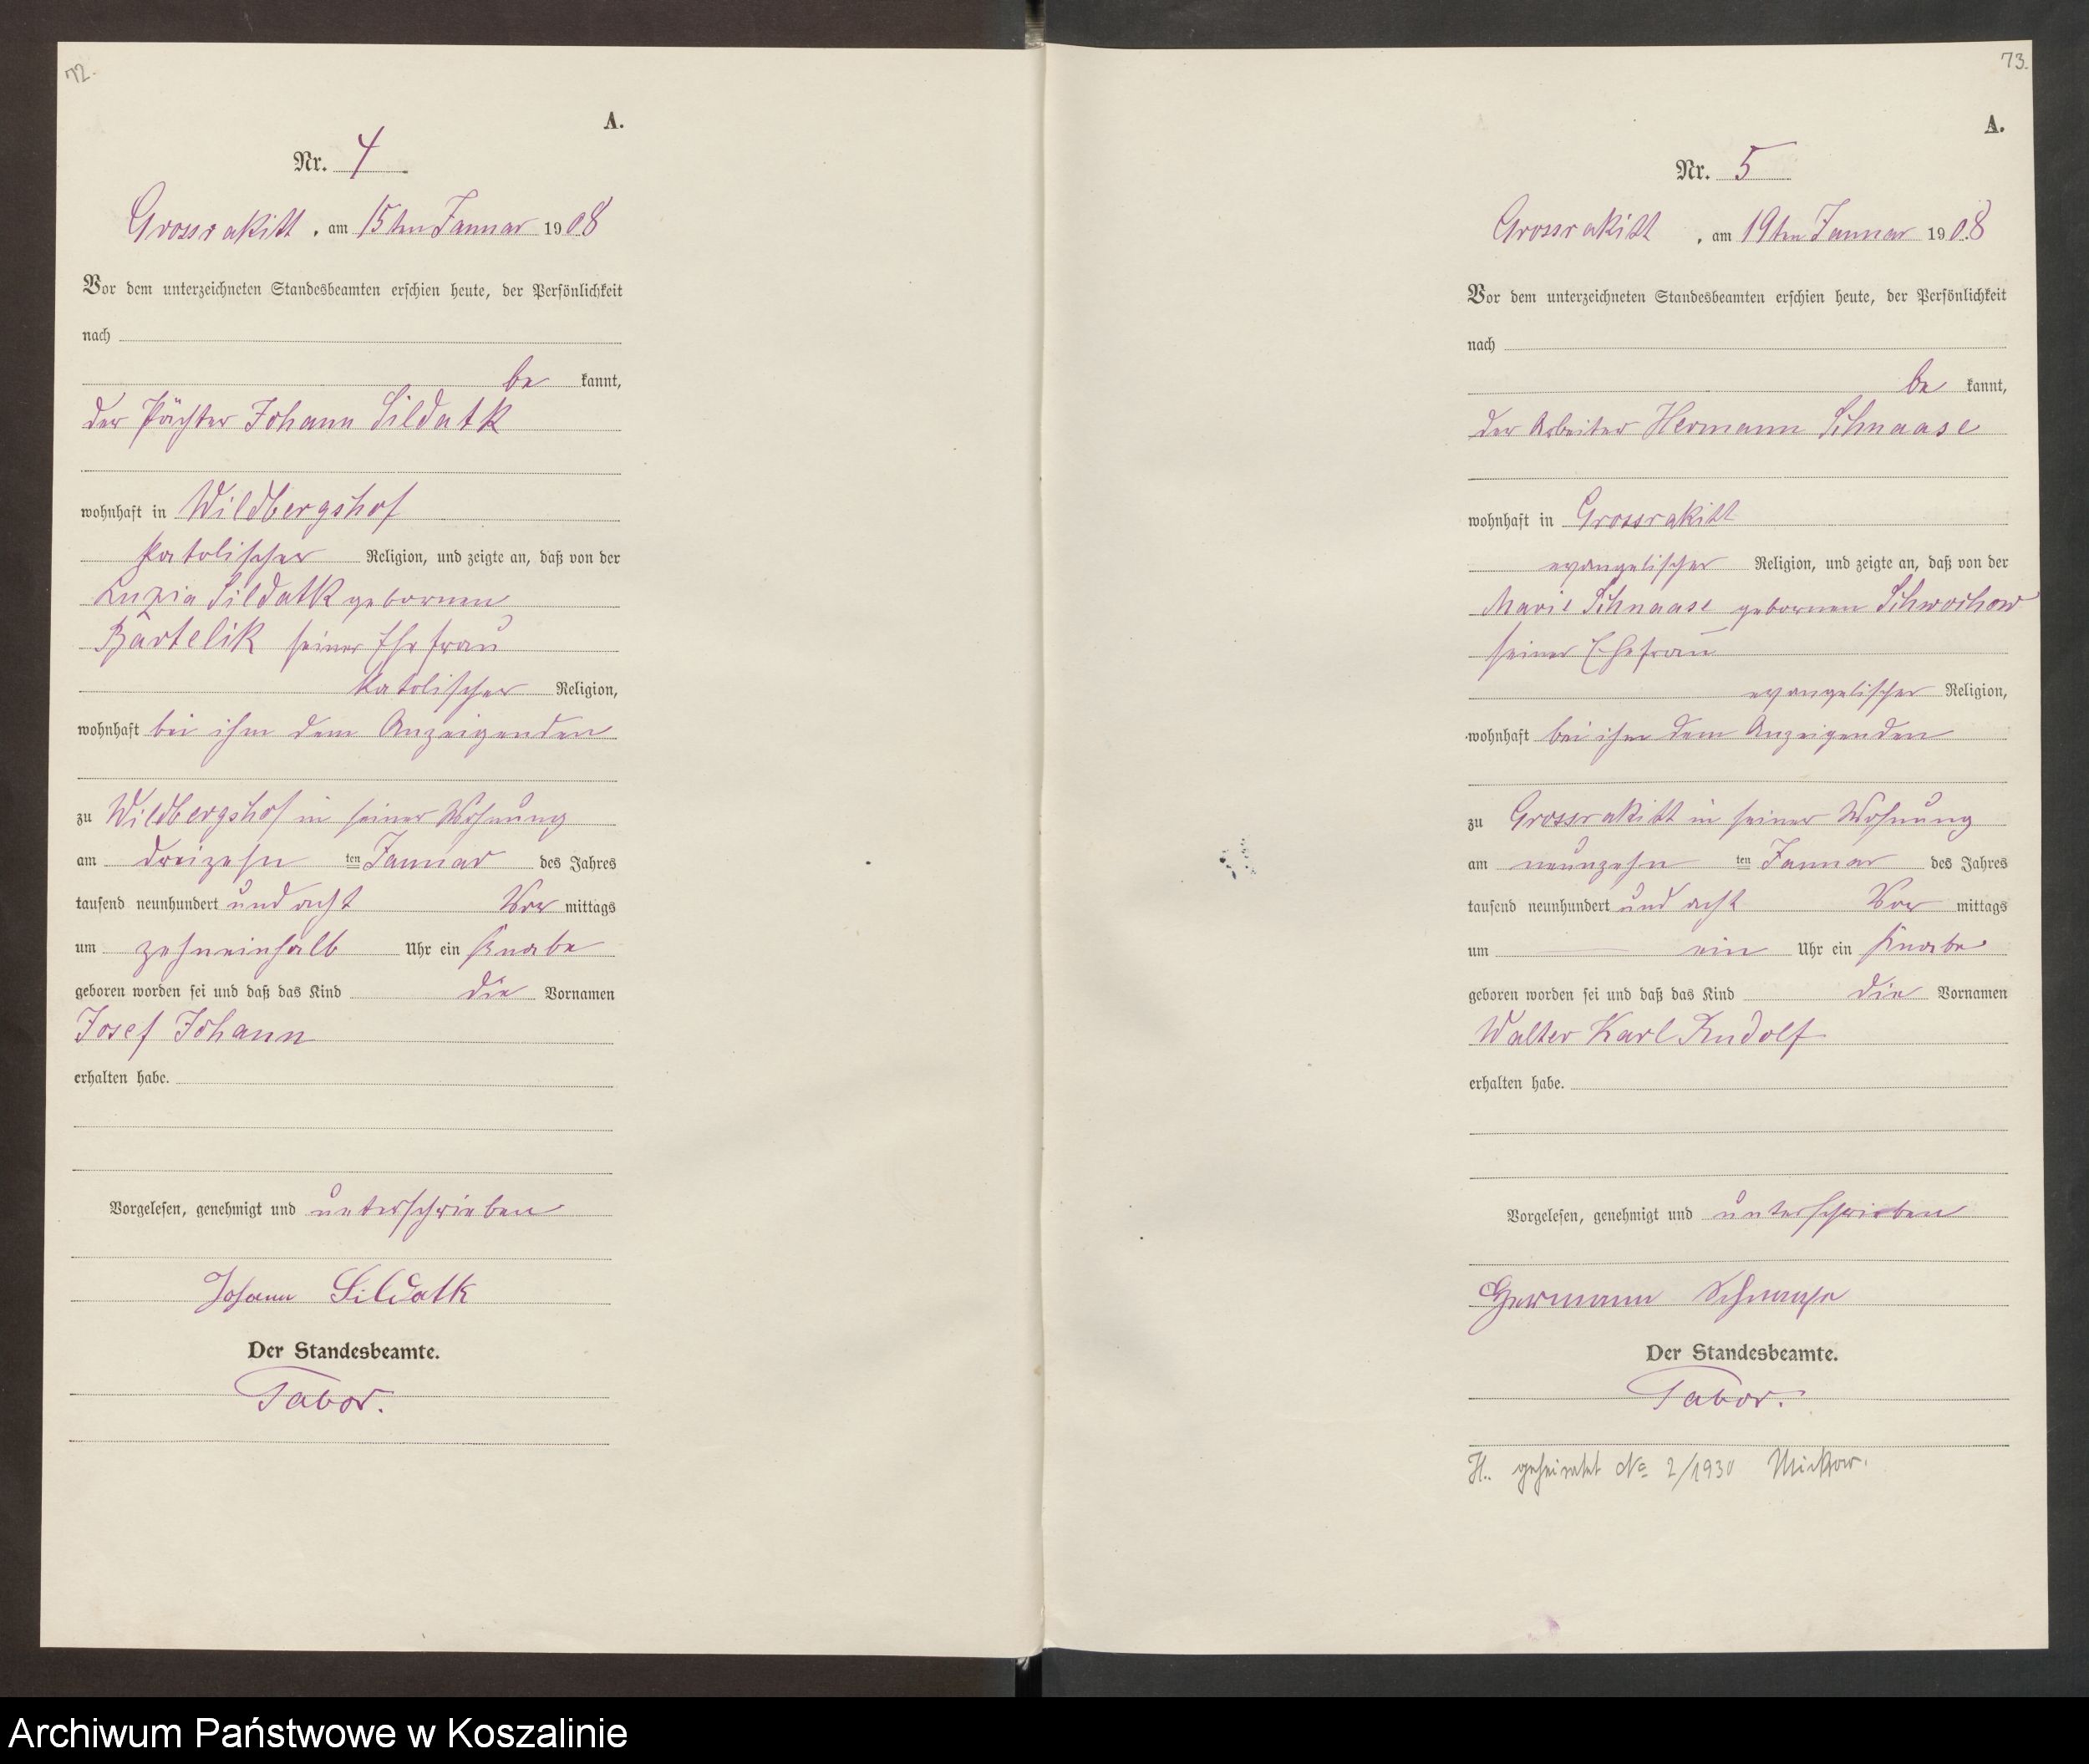 72.
A.
Nr. 4
Grossrakitt, am 15ten Januar 1908
Vor dem unterzeichneten Standesbeamten erschien heute, der Persönlichkeit
nach
be kannt,
der Pächter Johann Sildatk
wohnhaft in Wildbergshof
katolischer Religion, und zeigte an, daß von der
Luzia Sildatk gebornen
Bartelik seiner Ehefrau
katolischer Religion,
wohnhaft bei ihm dem Anzeigenden
zu Wildbergshof in seiner Wohnung
am dreizehn ten Januar des Jahres
tausend neunhundert und acht Vor mittags
um zehneinhalb Uhr ein Knabe
geboren worden sei und daß das Kind die Vornamen
Josef Johann
erhalten habe.
Vorgelesen, genehmigt und unterschrieben
Johann Sildatk
Der Standesbeamte.
Tabor.
73.
A.
Nr. 5
Grossrakitt, am 19ten Januar 1908
Vor dem unterzeichneten Standesbeamten erschien heute, der Persönlichkeit
nach
be kannt,
der Arbeiter Hermann Schnaase
wohnhaft in Grossrakitt
evangelischer Religion, und zeigte an, daß von der
Marie Schnaase gebornen Schwochow
seiner Ehefrau
evangelischer Religion,
wohnhaft bei ihm dem Anzeigenden
zu Grossrakitt in seiner Wohnung
am neunzehn ten Januar des Jahres
tausend neunhundert und acht Vor mittags
um ein Uhr ein Knabe
geboren worden sei und daß das Kind die Vornamen
Walter Karl Rudolf
erhalten habe.
Vorgelesen, genehmigt und unterschrieben
Hermann Schnaase
Der Standesbeamte.
Tabor.
H. geheiratet No 2/1930 Mickow.
Archiwum Państwowe w Koszalinie